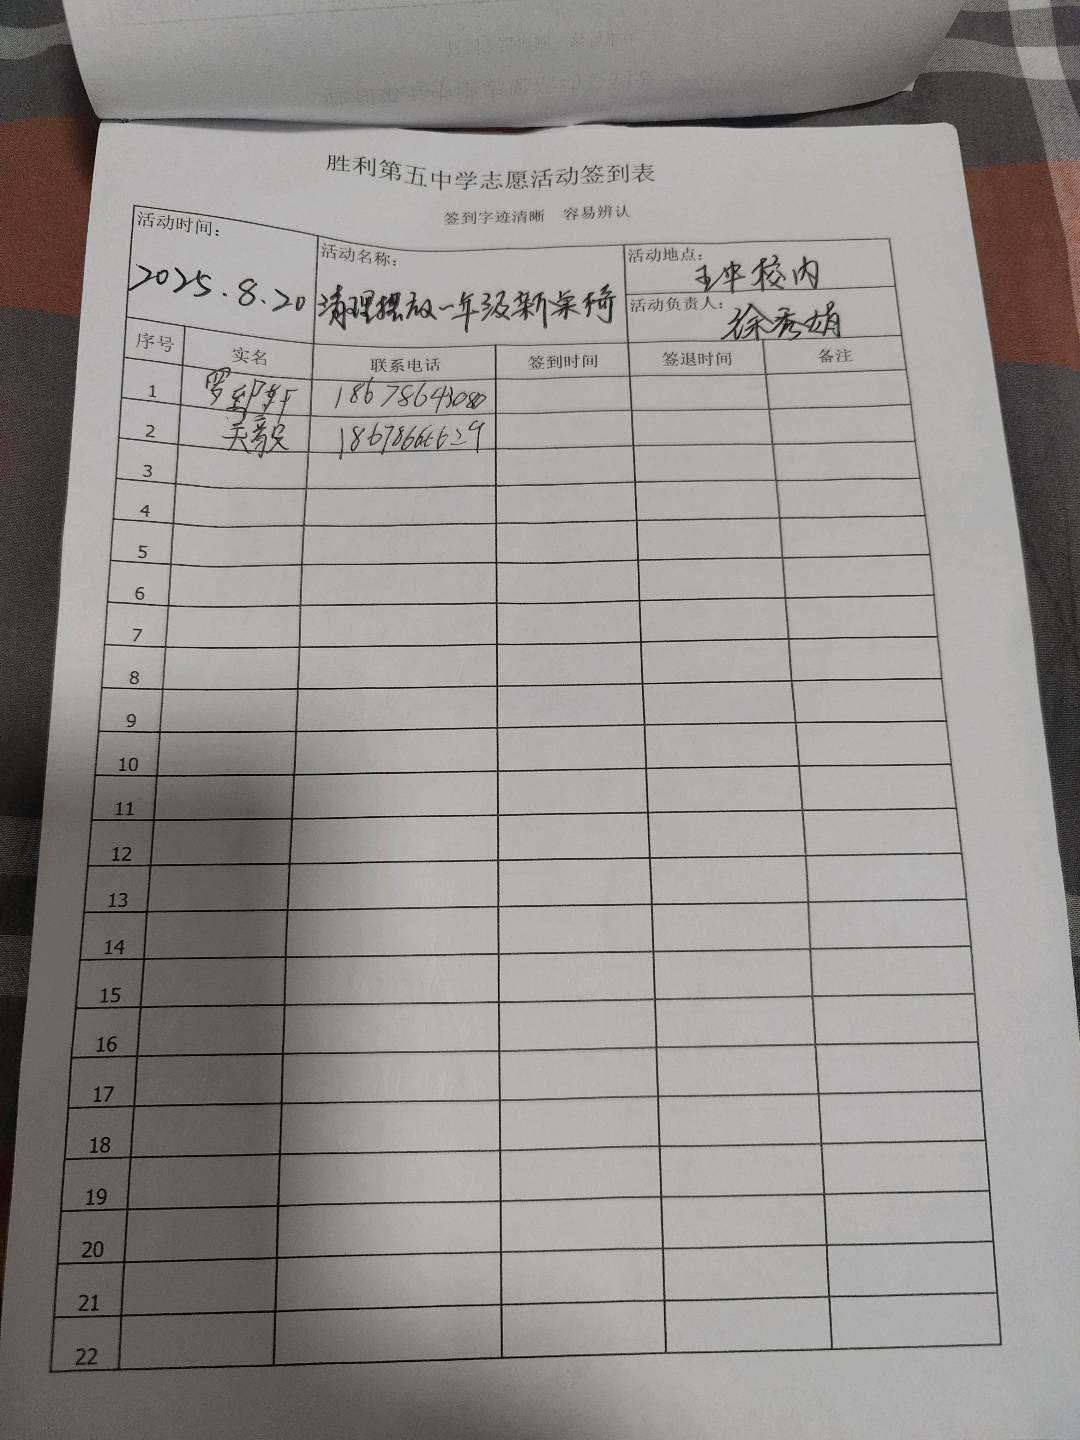 胜利第五中学志愿活动签到表
签到字迹清晰 容易辨认
活动时间：
2025.8.20
活动名称：
清理摆放一年级新桌椅
活动地点：
五中校内
活动负责人：
徐秀娟
序号 实名 联系电话 签到时间 签退时间 备注
1 罗 轩 18678643080
2
3
4
5
6
7
8
9
10
11
12
13
14
15
16
17
18
19
20
21
22